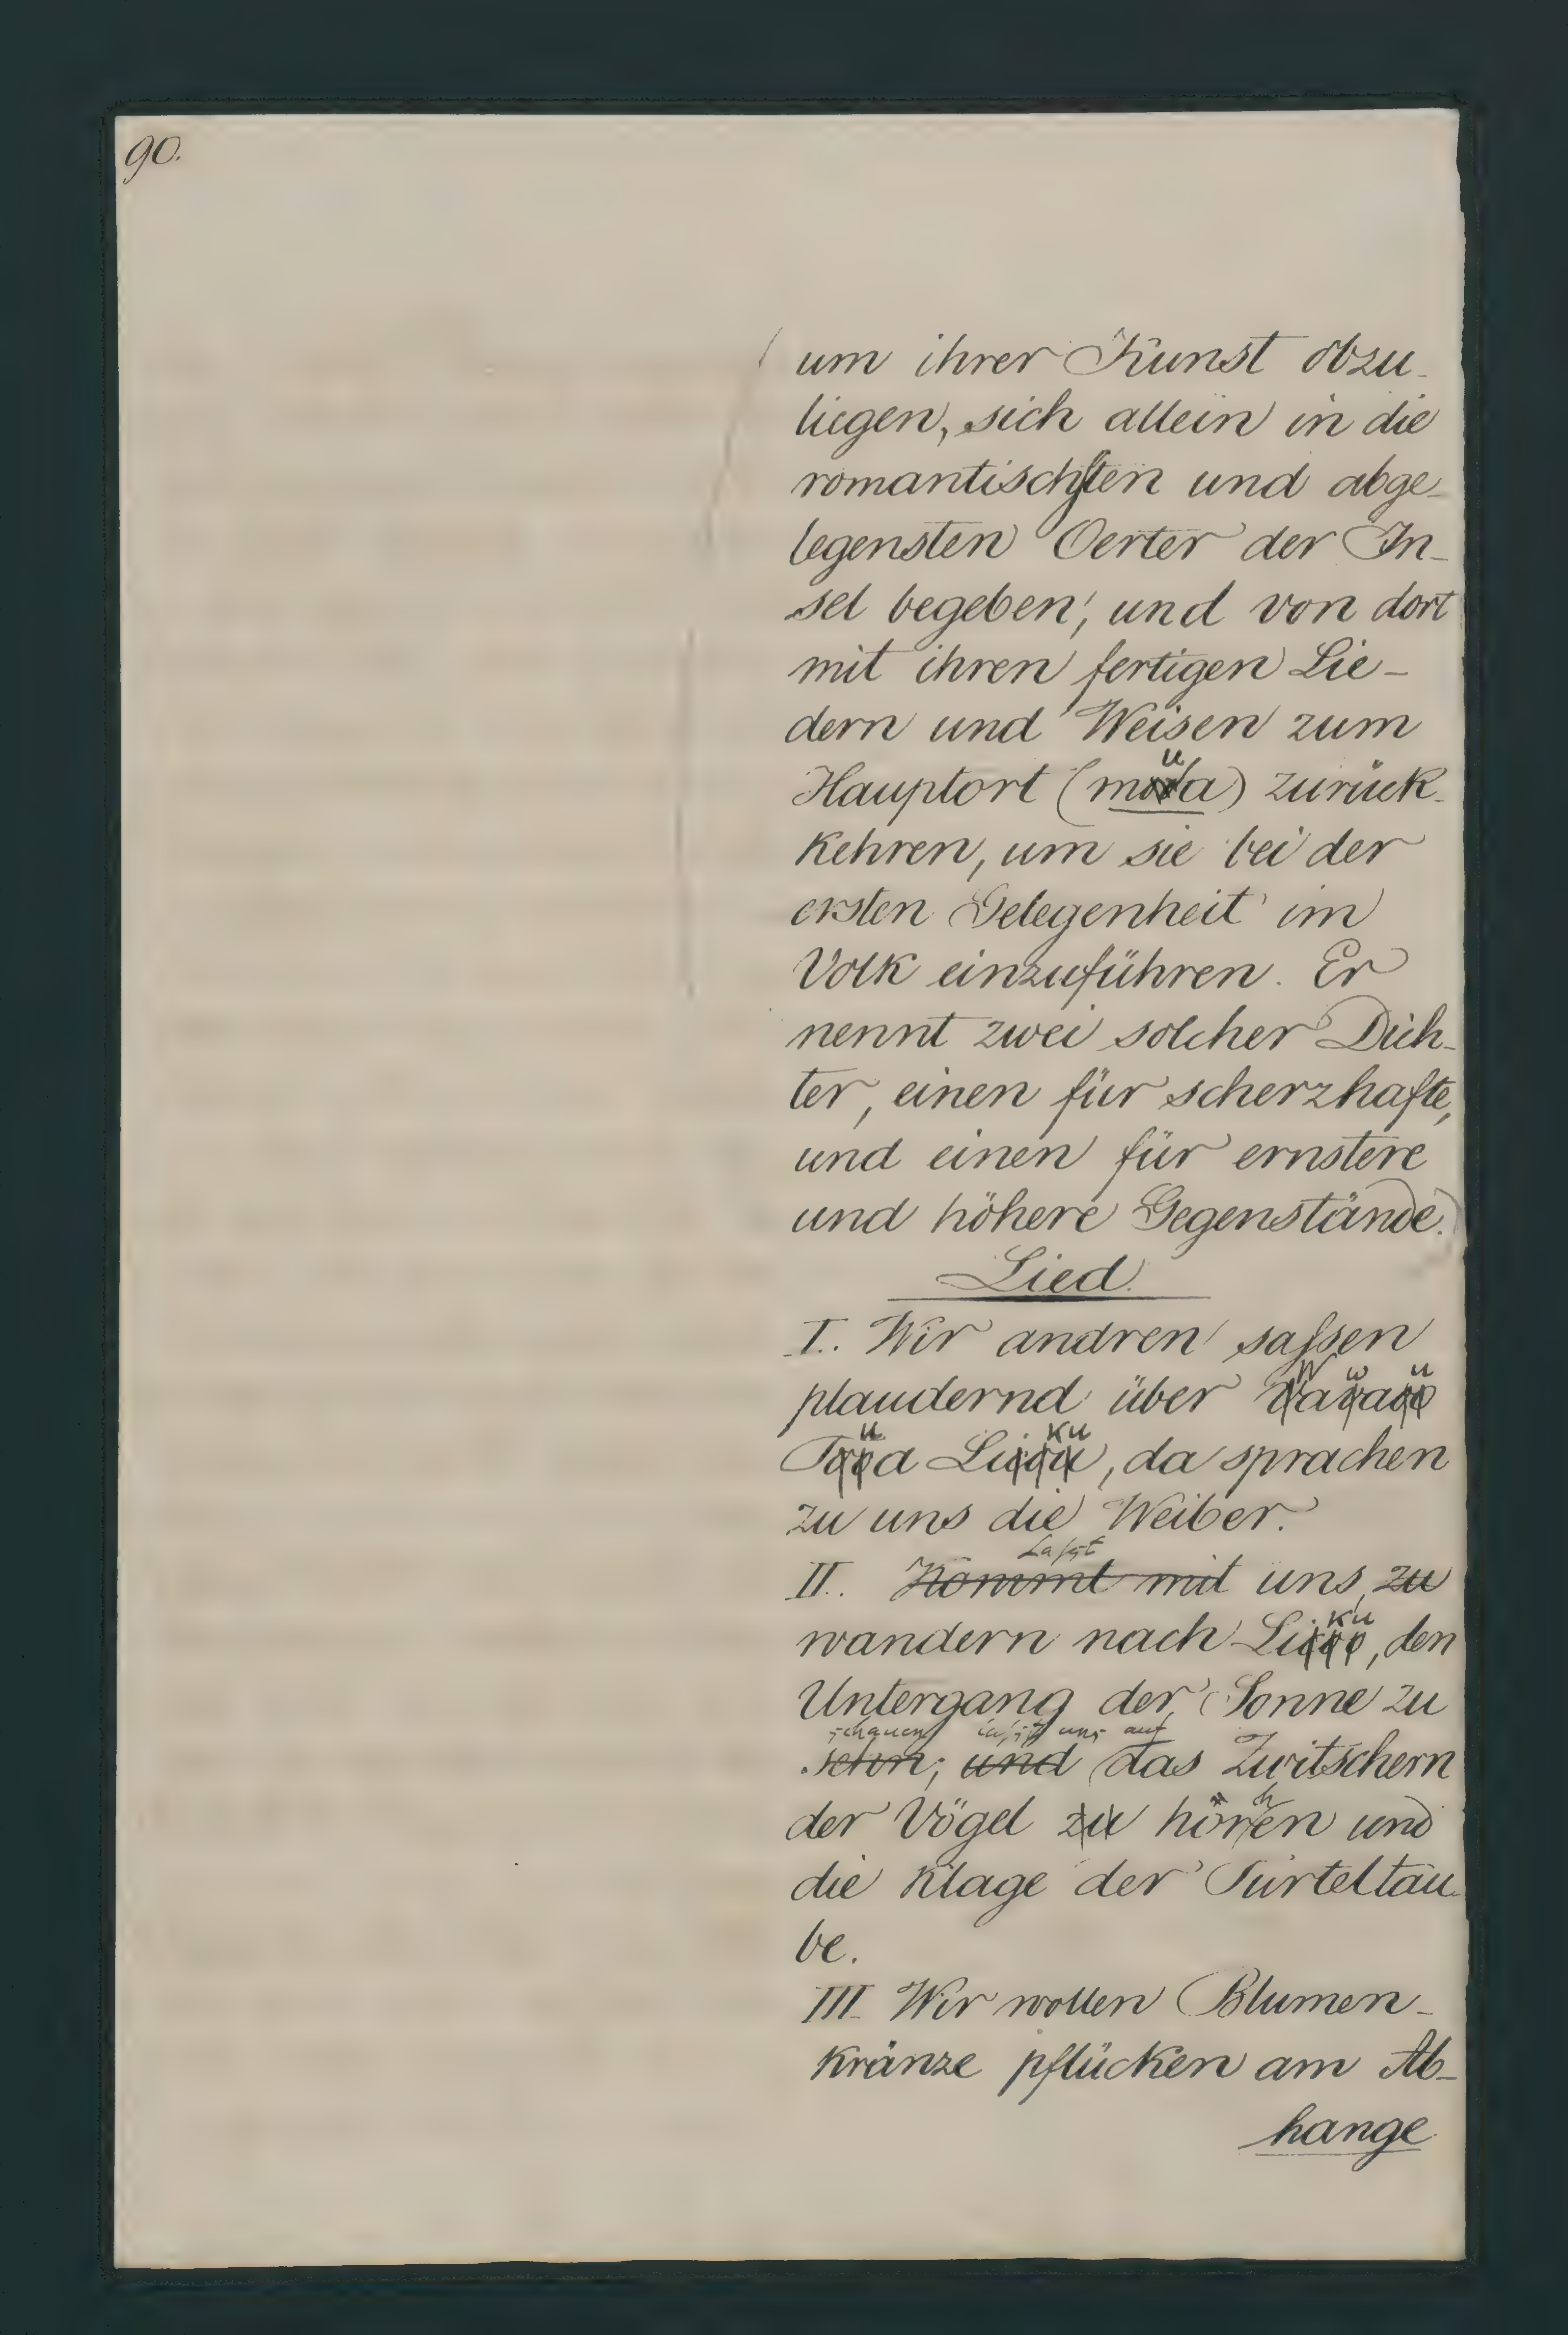 90.
um ihrer Kunst obzu-
liegen, sich allein in die
romantischsten und abge-
legensten Oerter der In-
sel begeben, und von dort
mit ihren fertigen Lie-
dern und Weisen zum
Hauptort (mua) zurück-
kehren, um sie bei der
ersten Gelegenheit im
Volk einzuführen. Er
nennt zwei solcher Dich-
ter, einen für scherzhafte,
und einen für ernstere
und höhere Gegenstände.)
Lied.
I. Wir andren saßen
plaudernd über
Tua Liku, da sprachen
zu uns die Weiber.
Laßt
II. Kommt mit uns, zu
wandern nach Liku, den
Untergang der Sonne zu
schauen laßt uns auf
sehen; und das Zwitschern
der Vögel zu horchen und
die Klage der Turteltau-
be.
III. Wir wollen Blumen-
kränze pflücken am Ab-
hange